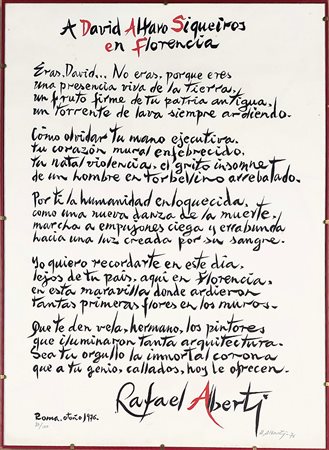 A David Alfaro Siqueiros
en Florencia
Eras, David... No eras, porque eres
una presencia viva de la tierra,
un fruto firme de tu patria antigua,
un torrente de lava siempre ardiendo.
Cómo olvidar tu mano ejecutiva,
tu corazón mural enfebrecido,
tu natal violencia, el grito insomne
de un hombre en torbellino arrebatado.
Por ti la humanidad enloquecida,
como una nueva danza de la muerte,
marcha a empujones ciega y errabunda
hacia una luz creada por su sangre.
Yo quiero recordarte en este día,
lejos de tu país, aquí en Florencia,
en esta maravilla donde ardieron
tantas primeras flores en los muros.
Que te den vela, hermano, los pintores
que iluminaron tanta arquitectura.
Sea tu orgullo la inmortal corona
que a tu genio, callados, hoy le ofrecen.
Rafael Alberti
Roma, otoño 1976.
R. Alberti 76